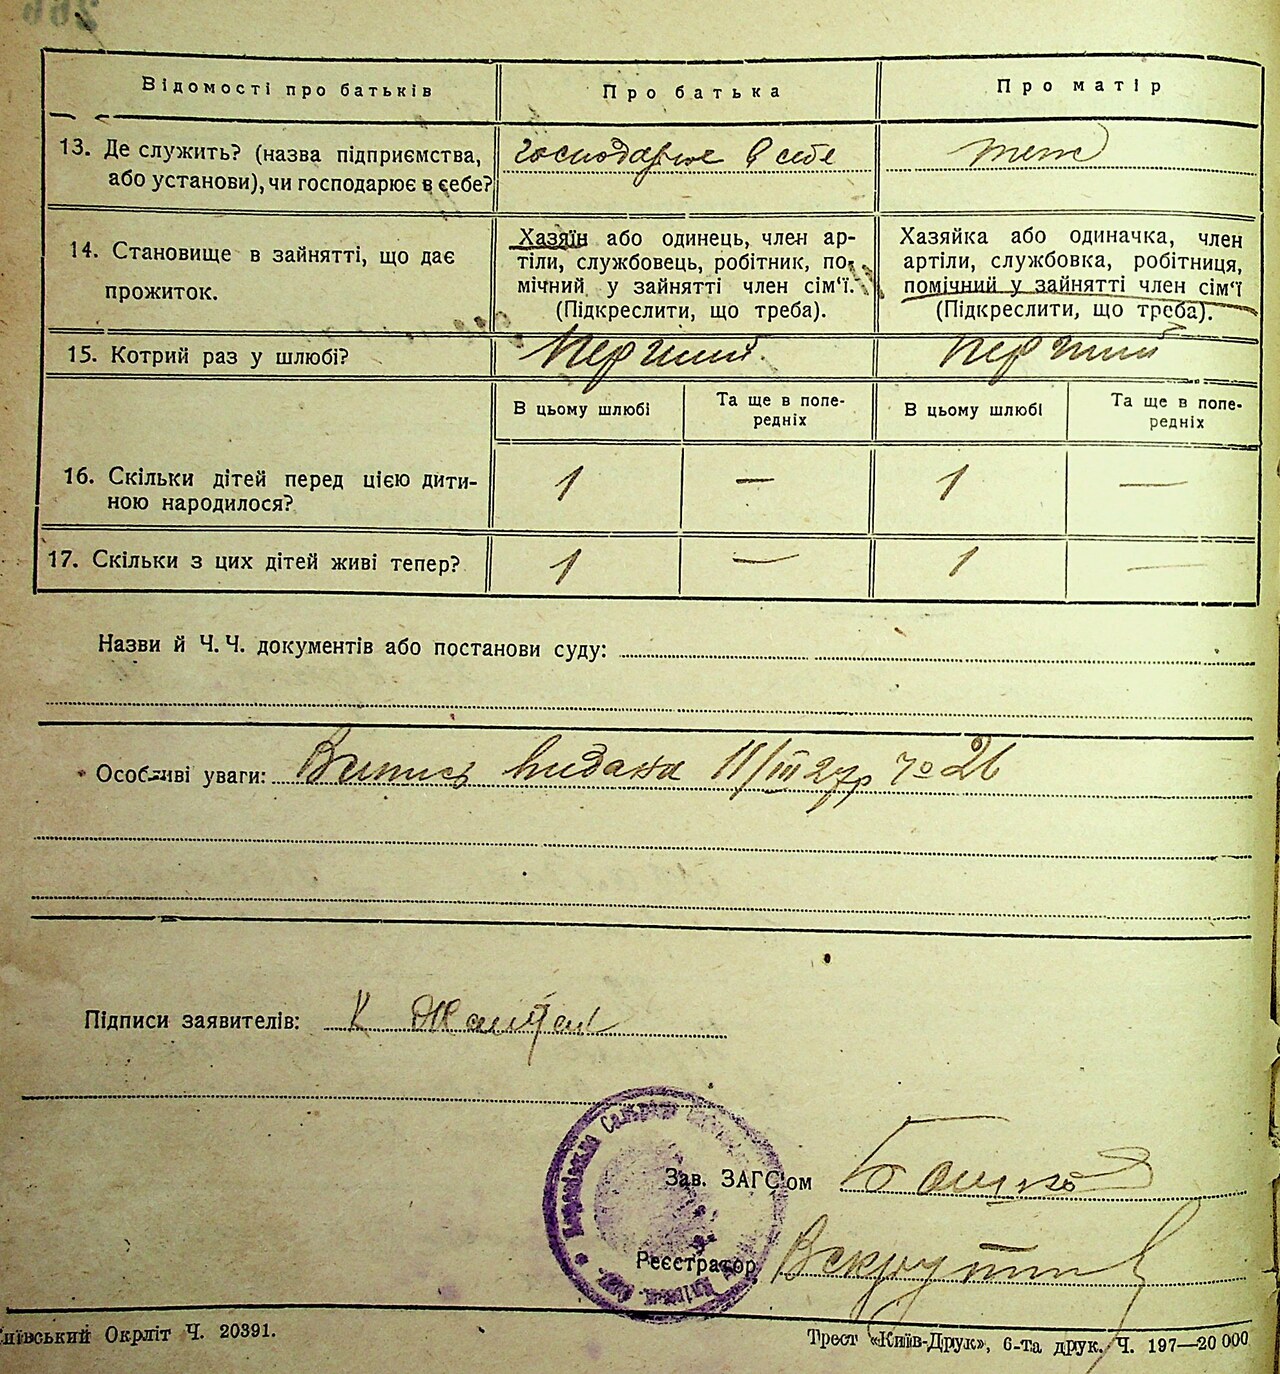 Відомості про батьків
Про батька
Про матір
13. Де служить? (назва підприємства,
або установи), чи господарює в себе?
господарює в себе
теж
14. Становище в зайнятті, що дає
прожиток.
Хазяїн або одинець, член ар-
тіли, службовець, робітник, по-
мічний у зайнятті член сім'ї.
(Підкреслити, що треба).
Хазяйка або одиначка, член
артіли, службовка, робітниця,
помічний у зайнятті член сім'ї
(Підкреслити, що треба).
15. Котрий раз у шлюбі?
Перший
Перший
В цьому шлюбі
Та ще в попе-
редніх
В цьому шлюбі
Та ще в попе-
редніх
16. Скільки дітей перед цією дити-
ною народилося?
1 — 1 —
17. Скільки з цих дітей живі тепер?
1 — 1 —
Назви й Ч. Ч. документів або постанови суду:
Особливі уваги: Випись видана 11/III 27р № 26
Підписи заявителів: К
Зав. ЗАГС'ом
Реєстратор
Київський Окрліт Ч. 20391.
Трест «Київ-Друк», 6-та друк. Ч. 197—20 000